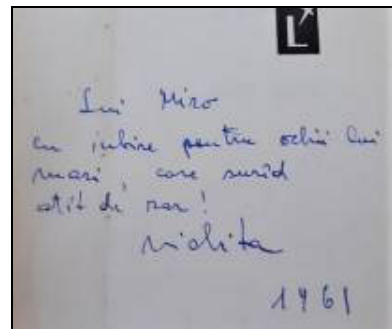 L
Lui Miro
cu iubire pentru ochii lui
mari, care surîd
atît de rar!
Violeta
1961